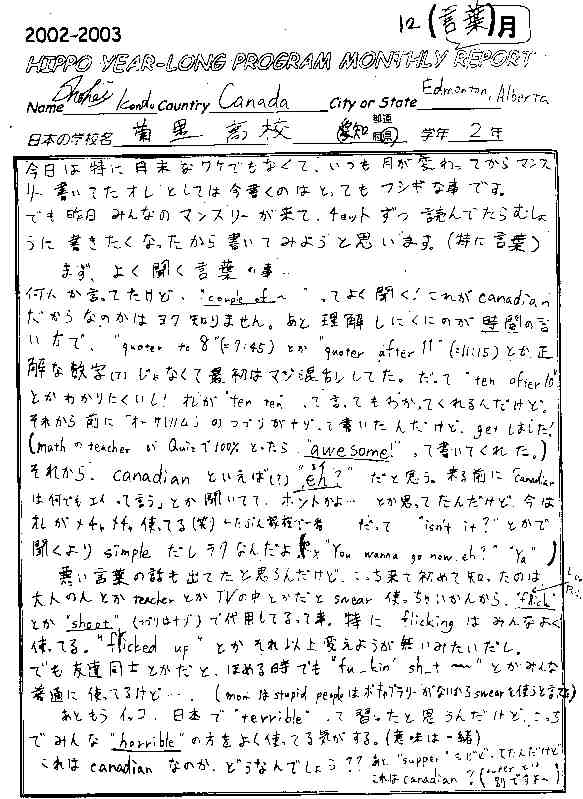 12 (言葉) 月
2002-2003
HIPPO YEAR-LONG PROGRAM MONTHLY REPORT
Name Shohei Kondo Country Canada City or State Edmonton, Alberta
日本の学校名 高校 愛知 都道府県 学年 2年
今日は特に日末なワケでもなくて、いつも月が変わってからマンス
リー書いてたオレとしては今書くのはとってもフシギな事です。
でも昨日みんなのマンスリーが来て、チョットずつ読んでたらむしょ
うに書きたくなったから書いてみようと思います。(特に言葉)
まず、よく聞く言葉の事…
何人か言ってたけど、"couple of~"ってよく聞く!これがcanadian
だからなのかはヨク知りません。あと理解しにくにのが時間の言
い方で、"quoter to 8"(=7:45)とか"quoter after 11"(=11:15)とか正
解な数字(?)じゃなくて最初はマジ混乱してた。だって"ten after 10"
とかわかりにくいし!オレが"ten ten"って言ってもわかってくれるんだけど。
それから前に のつづりがナゾって書いたんだけど、getしました!
(mathのteacherがQuizで100%とったら、"awesome!"って書いてくれた。)
それから、canadianといえば(?)"eh?"だと思う。来る前に「canadian
は何でもエイって言う」とか聞いてて、ホントかよ…とか思ってたんだけど、今は
オレがメチャメチャ使ってる(笑) だって"isn't it?"とかで
聞くよりsimpleだしラクなんだよ "You wanna go now, eh?" "Ya")
悪い言葉の話も出てたと思うんだけど、こっち来て初めて知ったのは
大人の人とかteacherとかTVの中とかだとswear使っちゃいかんから、"flick"
とか"shoot"(つづりはナゾ)で代用してるって事。特にflickingはみんなよく
使ってる。"flicked up"とかそれ以上変えようが無いみたいだし。
でも友達同士とかだと、ほめる時でも"fu_kin' sh_t ~~"とかみんな
普通に使ってるけど…。(momはstupid peopleはボキャブラリーがないからswearを使うと言ってた)
あともうイッコ、日本で"terrible"って習ったと思うんだけど、こっち
でみんな"horrible"の方をよく使ってる気がする。(意味は一緒)
これはcanadianなのか、どうなんでしょう??あと"supper"
これはcanadian?